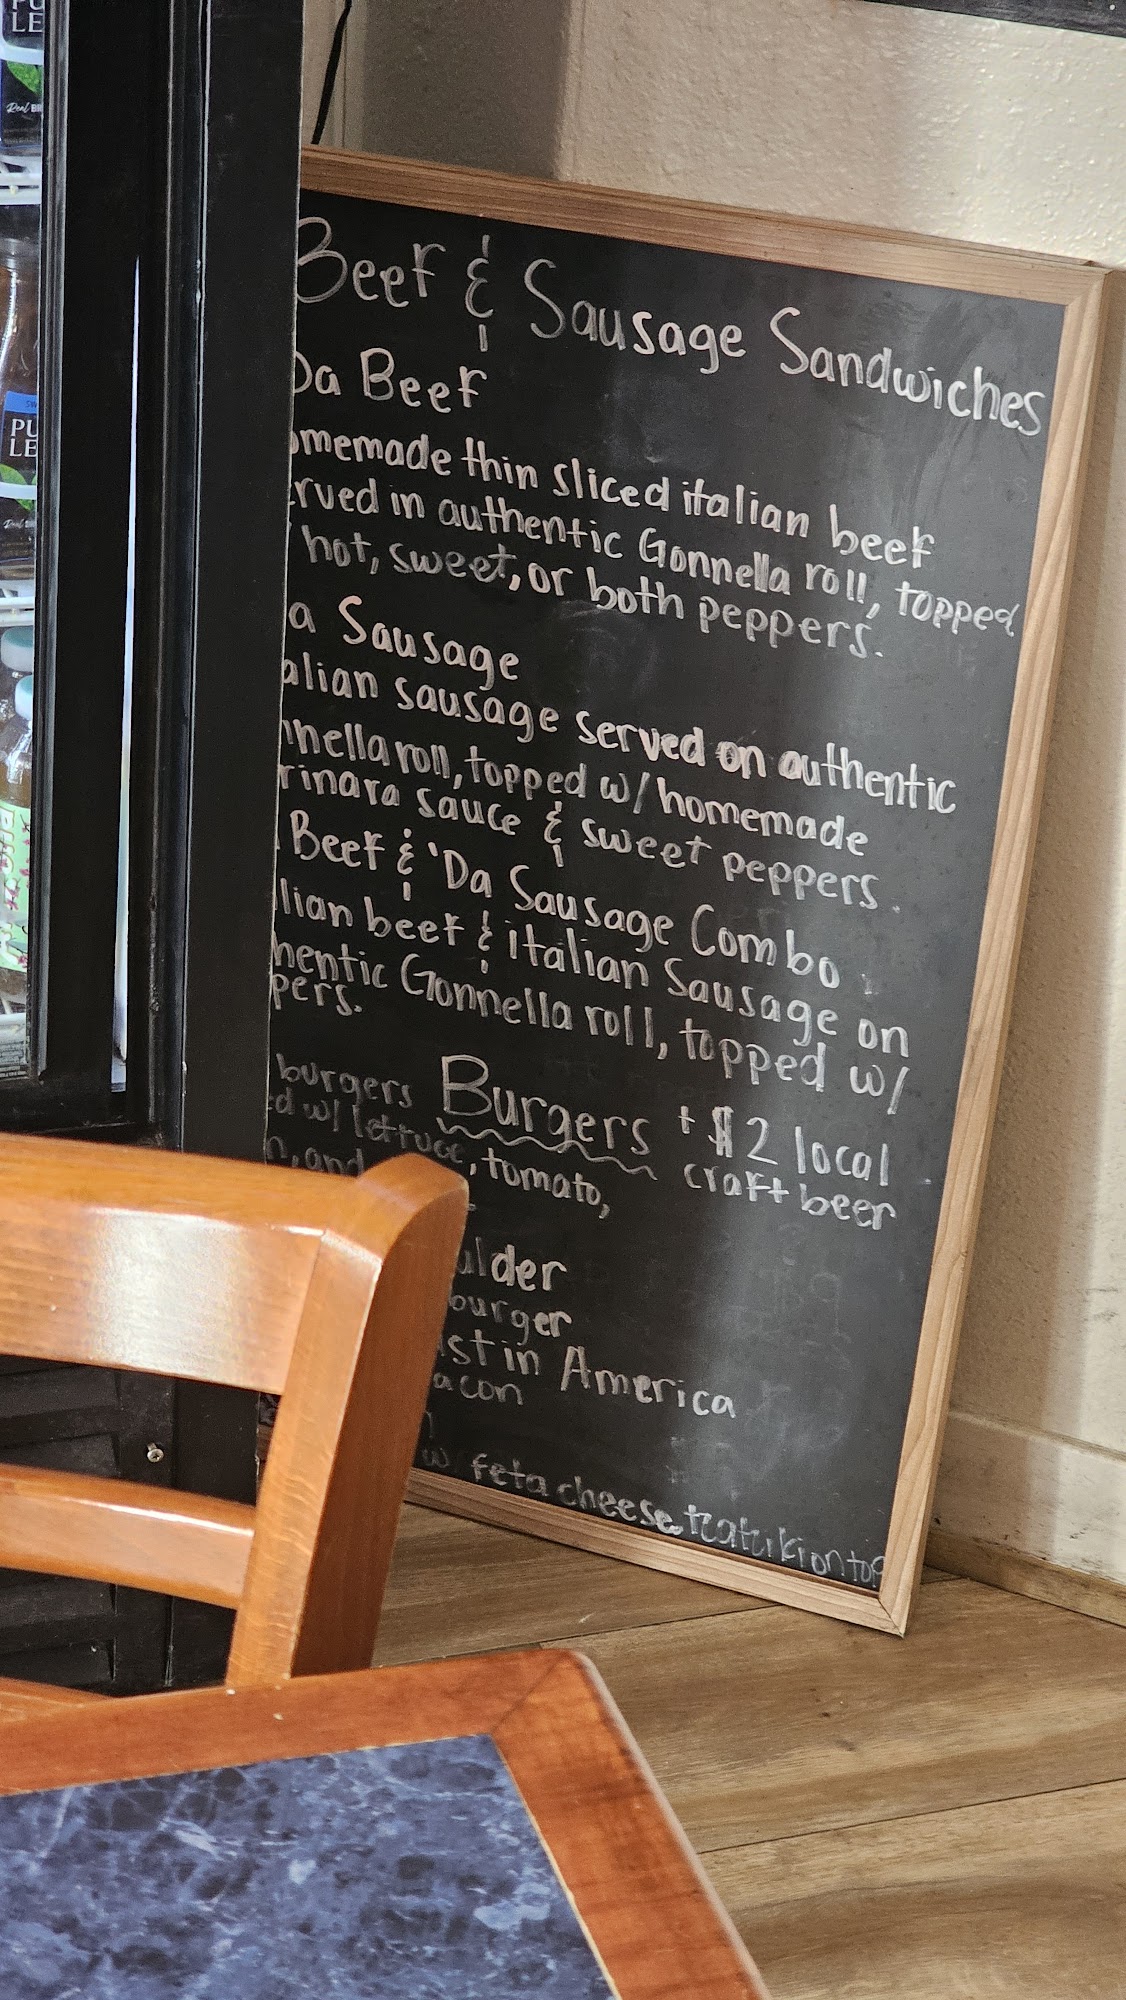 PU
LE
Real
PU
LE
Real
Beef & Sausage Sandwiches
Da Beef
omemade thin sliced italian beef
rved in authentic Gonnella roll, topped
hot, sweet, or both peppers.
a Sausage
alian sausage served on authentic
nnella roll, topped w/ homemade
rinara sauce & sweet peppers.
Beef & 'Da Sausage Combo
lian beef & italian Sausage on
hentic Gonnella roll, topped w/
pers.
burgers Burgers + $2 local
ed w/ lettuce, tomato, craft beer
n, and
ulder
burger
st in America
acon
w feta cheese, tzatziki on top